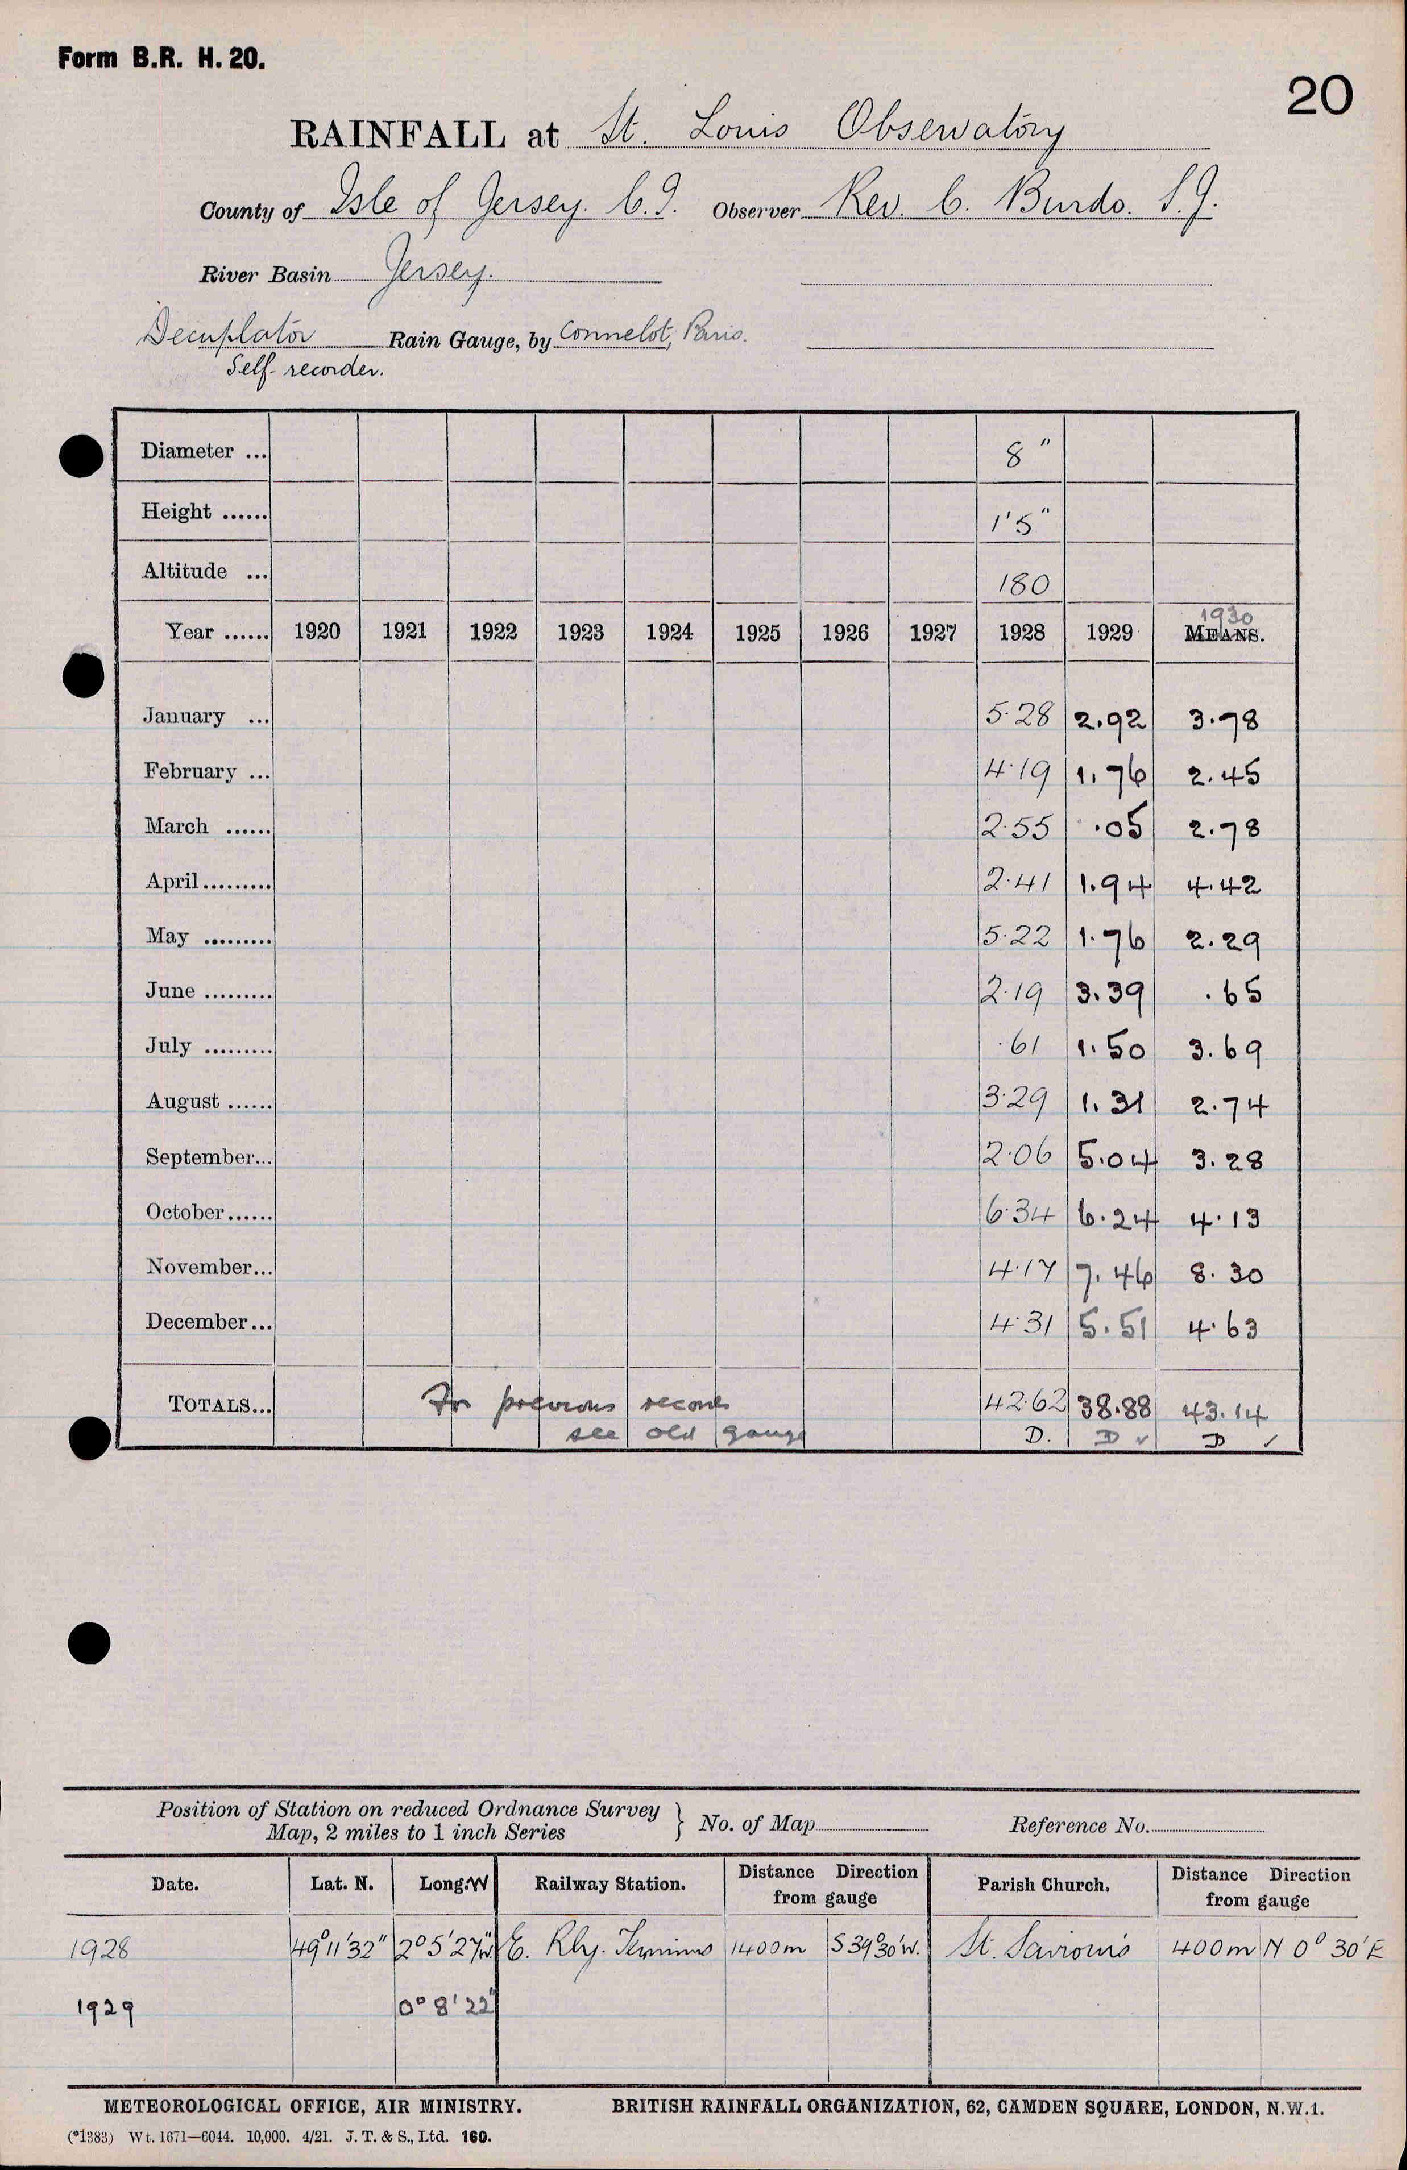 Form B.R. H. 20.
20
RAINFALL at St. Louis Observatory
County of Isle of Jersey. C.I. Observer Rev. C. Burdo. S.J.
River Basin Jersey.
Decuplator Rain Gauge, by Connelot, Paris.
Self-recorder.
Diameter ... 8"
Height ...... 1'5"
Altitude ... 180
1930
Year ...... 1920 1921 1922 1923 1924 1925 1926 1927 1928 1929 MEANS.
January ... 5.28 2.92 3.78
February ... 4.19 1.76 2.45
March ...... 2.55 .05 2.78
April ......... 2.41 1.94 4.42
May ......... 5.22 1.76 2.29
June ......... 2.19 3.39 .65
July ......... .61 1.50 3.69
August ...... 3.29 1.31 2.74
September... 2.06 5.04 3.28
October ...... 6.34 6.24 4.13
November... 4.17 7.46 8.30
December... 4.31 5.51 4.63
TOTALS... For previous records 42.62 38.88 43.14
see old gauge D. D ✓ D ✓
Position of Station on reduced Ordnance Survey
Map, 2 miles to 1 inch Series } No. of Map Reference No.
Date. Lat. N. Long. W Railway Station. Distance Direction from gauge Parish Church. Distance Direction from gauge
1928 49° 11' 32" 2° 5' 27" W E. Rly. Terminus 1400m S 39° 30' W. St. Saviour's 400m N 0° 30' E
1929 0° 8' 22"
METEOROLOGICAL OFFICE, AIR MINISTRY. BRITISH RAINFALL ORGANIZATION, 62, CAMDEN SQUARE, LONDON, N.W.1.
(*1383) Wt. 1671—6044. 10,000. 4/21. J. T. & S., Ltd. 160.